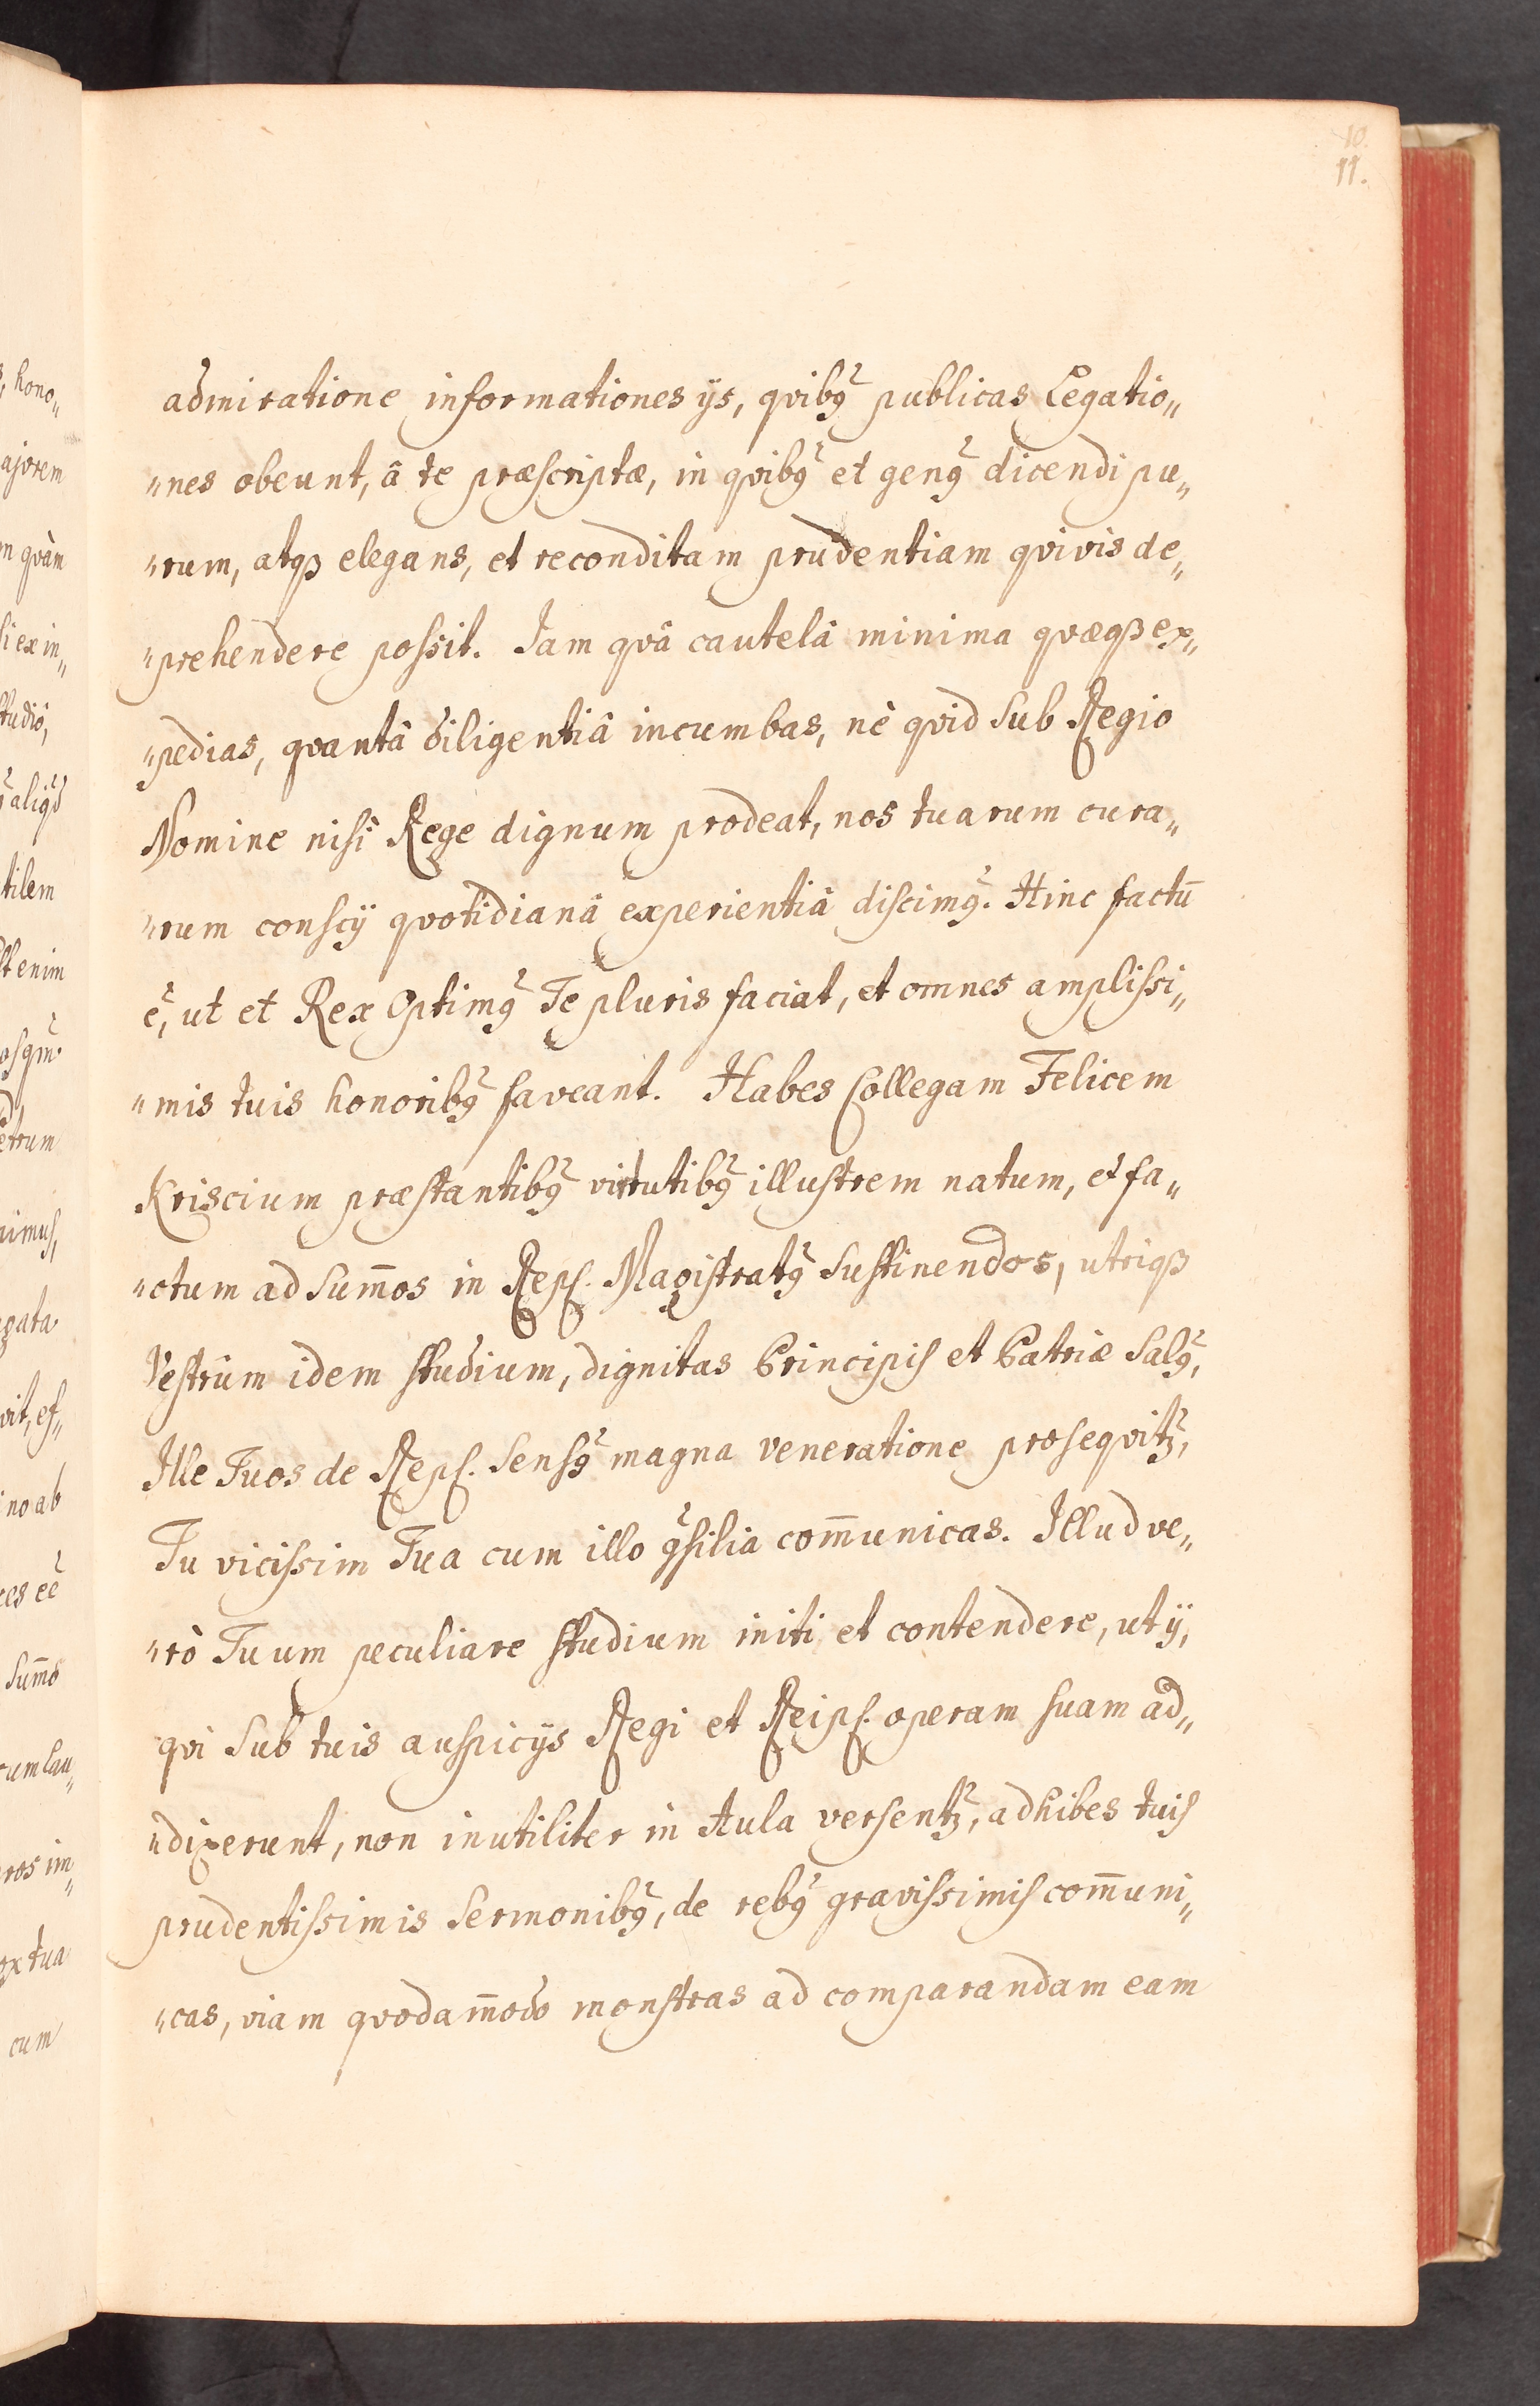 10.
11.
admiratione informationes ijs, qvibꝰ publicas Legatio„
„nes obeunt, â te præscriptæ, in qvibꝰ et genꝰ dicendi pu„
„rum, atqꝫ elegans, et reconditam prudentiam qvivis de„
„prehendere possit. Iam qvâ cautelâ minima qvæqꝫ ex„
„pedias, qvantâ diligentiâ incumbas, nè qvid sub Regio
Nomine nisi Rege dignum prodeat, nos tuarum cura„
„rum conscij qvotidianâ experientiâ discimꝰ. Hinc factū
ē, ut et Rex Optimꝰ Te pluris faciat, et omnes amplissi„
„mis tuis honoribꝰ faveant. Habes Collegam Felicem
Kriscium præstantibꝰ virtutibꝰ illustrem natum, et fa„
„ctum ad sum̄os in Repſ. Magistratꝰ sustinendos, utriqꝫ
Vestrûm idem studium, dignitas Principis et Patriæ salꝰ,
Ille Tuos de Repſ. sensꝰ magna veneratione proseqvitꝫ,
Tu vicissim Tua cum illo ꝯsilia com̄unicas. Illud ve„
„rò Tuum peculiare studium initi et contendere, ut ij,
qvi sub tuis auspicijs Regi et Reipſ. operam suam ad„
„dixerunt, non inutiliter in Aula versentꝫ, adhibes tuis
prudentissimis sermonibꝰ, de rebꝰ gravissimis com̄uni„
„cas, viam qvodam̄odo monstras ad comparandam eam